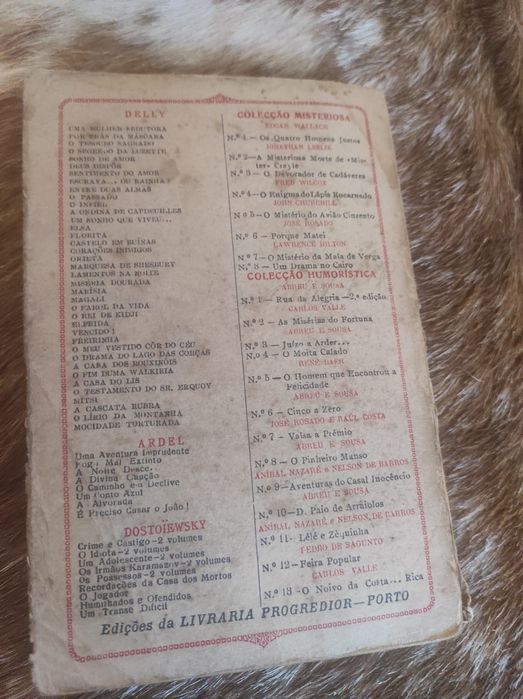 DELLY
UMA MULHER SEDUTORA
POR TRÁS DA MÁSCARA
O TESOURO SAGRADO
O SEGREDO DA LUZETTE
SONHO DE AMOR
DEUS DISPÔR
SENTIMENTO DO AMOR
ESCRAVA... OU RAINHA?
ENTRE DUAS ALMAS
O PASSADO
O INFIEL
A ONDINA DE CAPDEUILLES
UM SONHO QUE VIVEU...
ELSA
FLORITA
CASTELO EM RUÍNAS
CORAÇÕES INIMIGOS
ORIETA
MARQUESA DE SHESBURY
LAMENTOS NA NOITE
MISÉRIA DOURADA
MARÍSIA
MAGALI
O FAROL DA VIDA
O REI DE KIDJI
ELFRIDA
VENCIDO!
FREIRINHA
O MEU VESTIDO CÔR DO CÉU
O DRAMA DO LAGO DAS CORÇAS
A CASA DOS ROUXINÓIS
O FIM DUMA WALKIRIA
A CASA DO LIS
O TESTAMENTO DO SR. ERQUOY
MITSI
A CASCATA RUBRA
O LÍRIO DA MONTANHA
MOCIDADE TORTURADA
ARDEL
Uma Aventura Imprudente
Fogo Mal Extinto
A Noite Desce...
A Divina Canção
O Caminho em Declive
Um Conto Azul
A Alvorada
É Preciso Casar o João!
DOSTOÏEWSKY
Crime e Castigo-2 volumes
O Idiota-2 volumes
Um Adolescente-2 volumes
Os Irmãos Karamazov-2 volumes
Os Possessos-2 volumes
Recordações da Casa dos Mortos
O Jogador
Humilhados e Ofendidos
Um Transe Difícil
COLECÇÃO MISTERIOSA
EDGAR WALLACE
N.º 1 — Os Quatro Homens Justos
JONATHAN LESLIE
N.º 2—A Misteriosa Morte de «Mis-
ter» Creste
N.º 3 — O Devorador de Cadáveres
FRED WILCOX
N.º 4—O Enigma do Lápis Encarnado
JOHN CHURCHILL
N.º 5—O Mistério do Avião Cinzento
JOSÉ ROSADO
N.º 6 — Porque Matei
LAWRENCE HILTON
N.º 7—O Mistério da Mala de Verga
N.º 8 — Um Drama no Cairo
COLECÇÃO HUMORÍSTICA
ABREU E SOUSA
N.º 1 — Rua da Alegria—2.ª edição
CARLOS VALLE
N.º 2 — As Misérias do Fortuna
ABREU E SOUSA
N.º 3 — Juízo a Arder...
N.º 4 — O Moita Calado
RENÉ BAER
N.º 5 — O Homem que Encontrou a
Felicidade
ABREU E SOUSA
N.º 6 — Cinco a Zéro
JOSÉ ROSADO E RAÚL COSTA
N.º 7 — Valsa a Prêmio
ABREU E SOUSA
N.º 8 — O Pinheiro Manso
ANÍBAL NAZARÉ e NELSON DE BARROS
N.º 9—Aventuras do Casal Inocêncio
ABREU E SOUSA
N.º 10—D. Paio de Arráiolos
ANÍBAL NAZARÉ e NELSON DE BARROS
N.º 11- Lélé e Zéquinha
PEDRO DE SAGUNTO
N.º 12—Feira Popular
CARLOS VALLE
N.º 13—O Noivo da Costa... Rica
Edições da LIVRARIA PROGREDIOR—PORTO